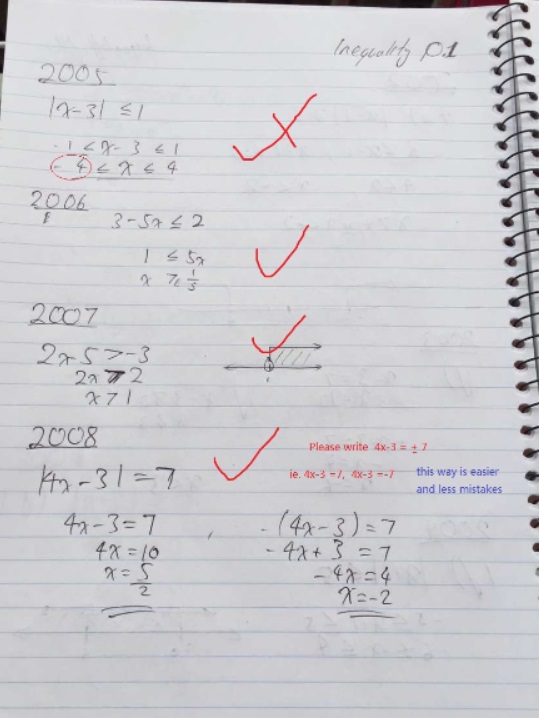 Inequality p.1
2005
|x-3| ≤ 1
-1 ≤ x-3 ≤ 1
-4 ≤ x ≤ 4
2006
3-5x ≤ 2
1 ≤ 5x
x ≥ 1/5
2007
2x-5 > -3
2x > 2
x > 1
2008
Please write 4x-3 = ± 7
|4x-3| = 7
ie. 4x-3 =7, 4x-3 =-7
this way is easier
and less mistakes
4x-3 = 7 , -(4x-3) = 7
4x = 10 -4x+3 = 7
x = 5/2 -4x = 4
x = -2